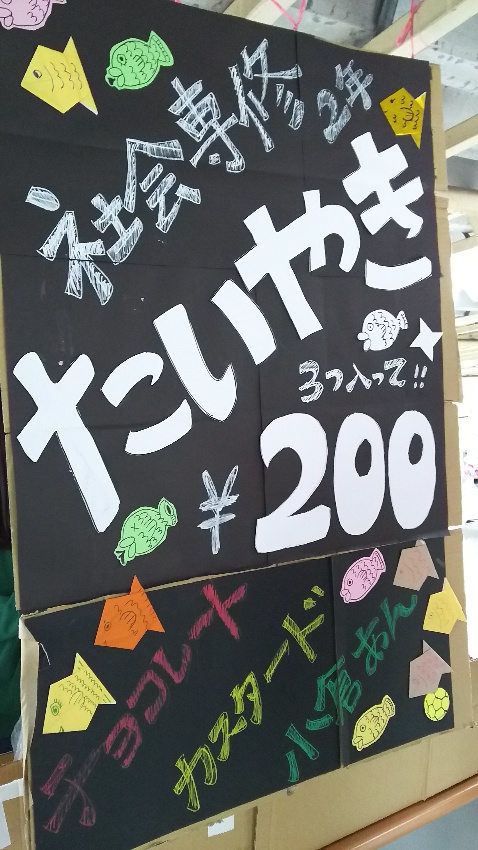 社会専修2年
たいやき
3つ入って!!
¥200
チョコレート
カスタード
小倉あん